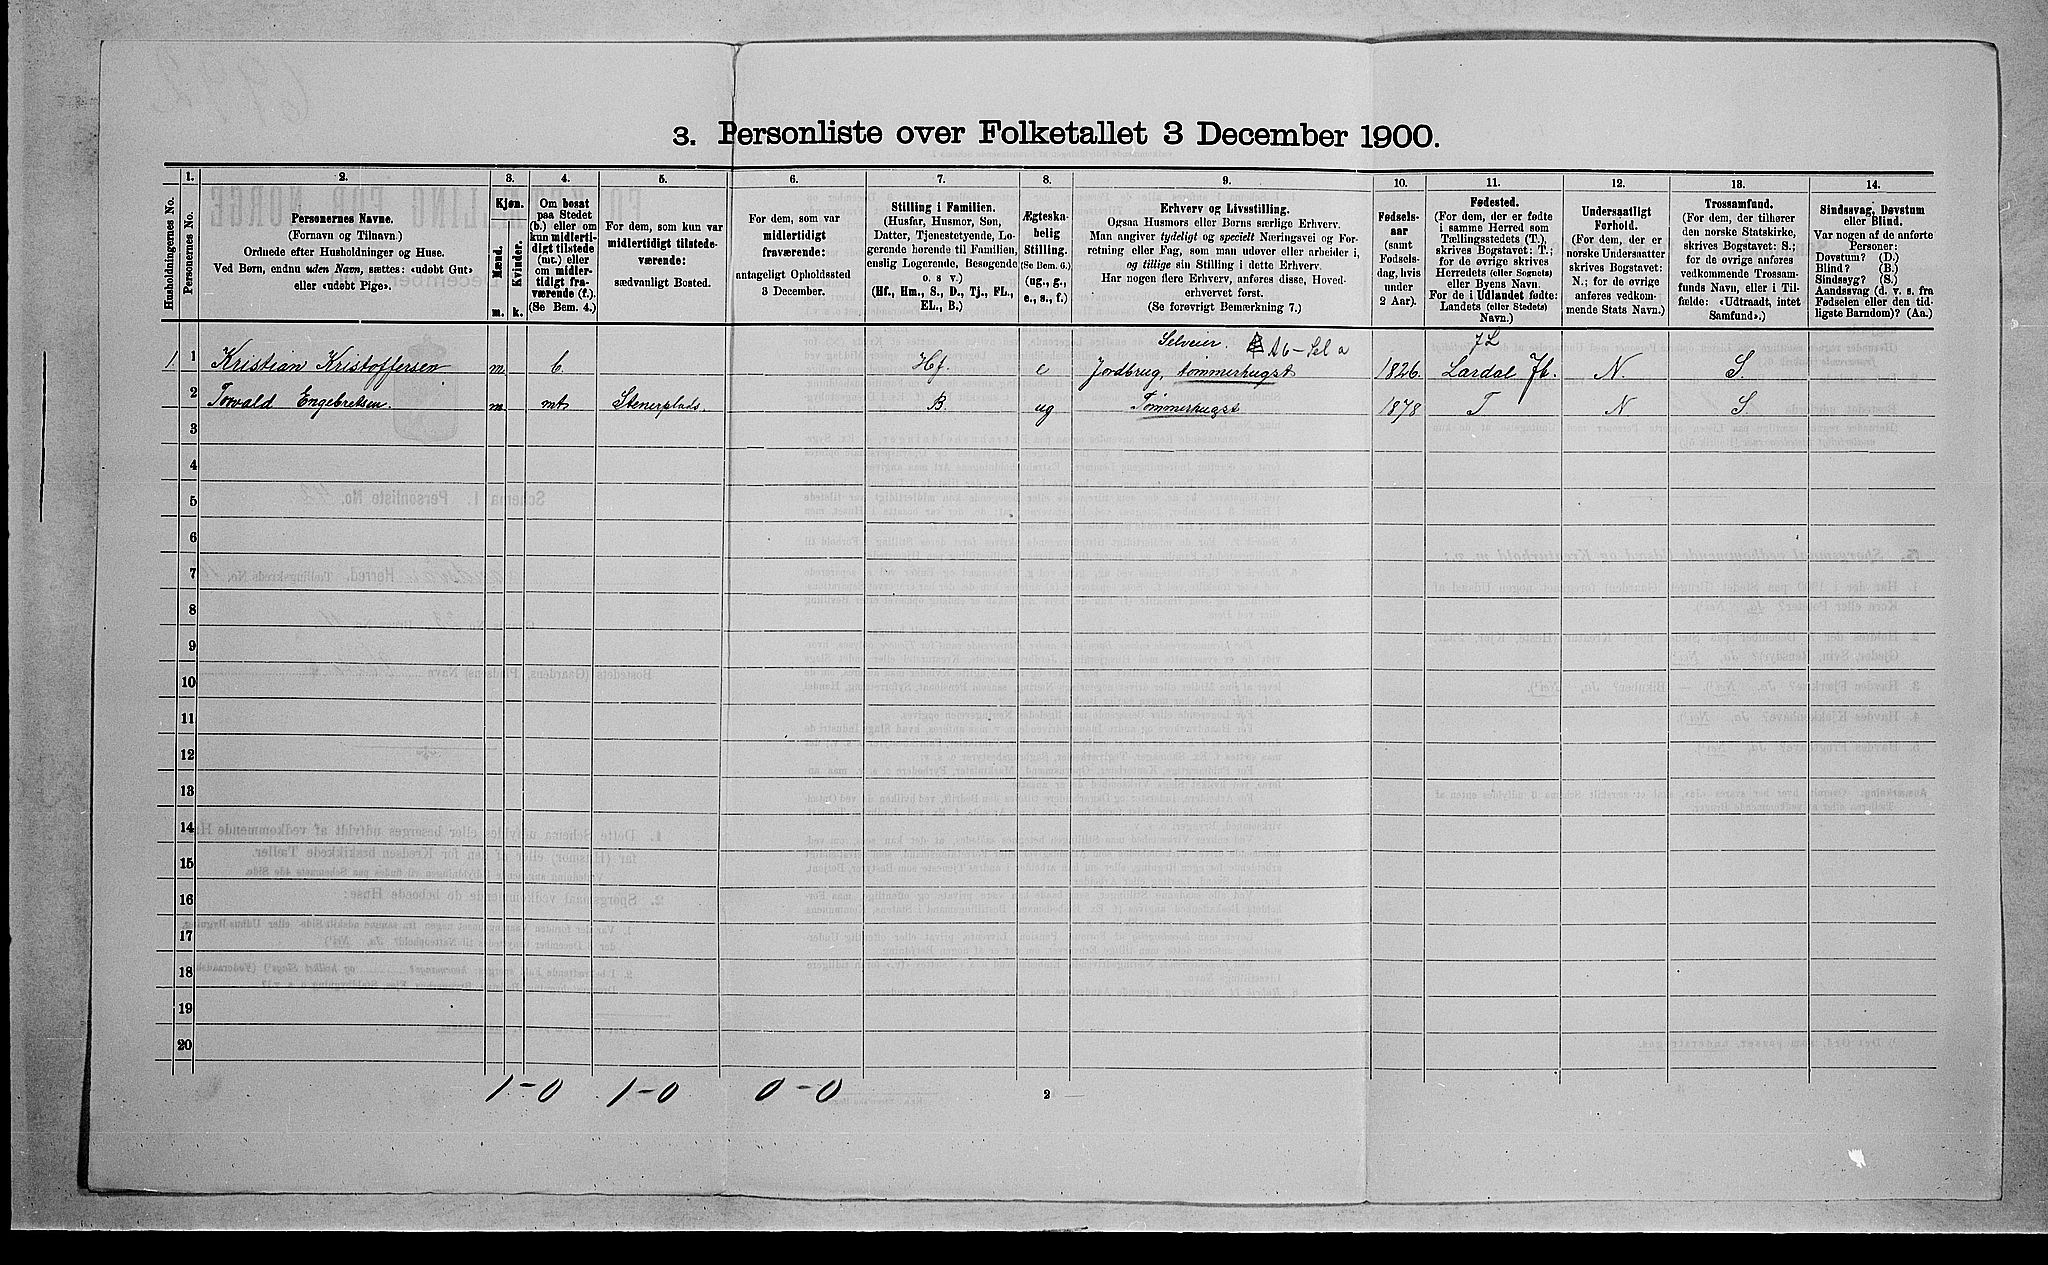 3. Personliste over Folketallet 3 December 1900.
Husholdningernes No.
1.
Personernes No.
2.
Personernes Navne.
(Fornavn og Tilnavn.)
Ordnede efter Husholdninger og Huse.
Ved Børn, endnu uden Navn, sættes: «udøbt Gut»
eller «udøbt Pige».
3.
Kjøn.
Mænd.
Kvinder.
m.
k.
4.
Om bosat
paa Stedet
(b.) eller om
kun midlerti-
digt tilstede
(mt.) eller
om midler-
tidigt fra-
værende (f.).
(Se Bem. 4.)
5.
For dem, som kun var
midlertidigt tilstede-
værende:
sædvanligt Bosted.
6.
For dem, som var
midlertidigt
fraværende:
antageligt Opholdssted
3 December.
7.
Stilling i Familien.
(Husfar, Husmor, Søn,
Datter, Tjenestetyende, Lo-
gerende hørende til Familien,
enslig Logerende, Besøgende
o. s v.)
(Hf., Hm., S., D., Tj., FL.,
EL., B.)
8.
Ægteska-
belig
Stilling.
(Se Bem. 6.)
(ug., g.,
e., s., f.)
9.
Erhverv og Livsstilling.
Ogsaa Husmors eller Børns særlige Erhverv.
Man angiver tydeligt og specielt Næringsvei og For-
retning eller Fag, som man udover eller arbeider i,
og tillige sin Stilling i dette Erhverv.
Har nogen flere Erhverv, anføres disse, Hoved-
erhvervet først.
(Se forøvrigt Bemærkning 7.)
10.
Fødsels-
aar
(samt
Fødsels-
dag, hvis
under
2 Aar).
11.
Fødested.
(For dem, der er fødte
i samme Herred som
Tællingsstedets (T.),
skrives Bogstavet: T.;
for de øvrige skrives
Herredets (eller Sognets)
eller Byens Navn.
For de i Udlandet fødte:
Landets (eller Stedets)
Navn.)
12.
Undersaatligt
Forhold.
(For dem, der er
norske Undersaatter
skrives Bogstavet:
N.; for de øvrige
anføres vedkom-
mende Stats Navn.)
13.
Trossamfund.
(For dem, der tilhører
den norske Statskirke,
skrives Bogstavet: S.;
for de øvrige anføres
vedkommende Trossam-
funds Navn, eller i Til-
fælde: «Udtraadt, intet
Samfund».)
14.
Sindssvag, Døvstum
eller Blind.
Var nogen af de anførte
Personer:
Døvstum? (D.)
Blind? (B.)
Sindssyg? (S.)
Aandssvag (d. v. s. fra
Fødselen eller den tid-
ligste Barndom)? (Aa.)
Selveier. A6-Sel a
1. 1 Kristian Kristoffersen m. b. Hf. e Jordbrug, tømmerhugst 1826 Lardal Jb. N. S.
2 Torvald Engebretsen. m. mt Stenerplads. B. ug Tømmerhugst 1878 T N S.
3
4
5
6
7
8
9
10
11
12
13
14
15
16
17
18
19
20
1-0 1-0 0-0 2